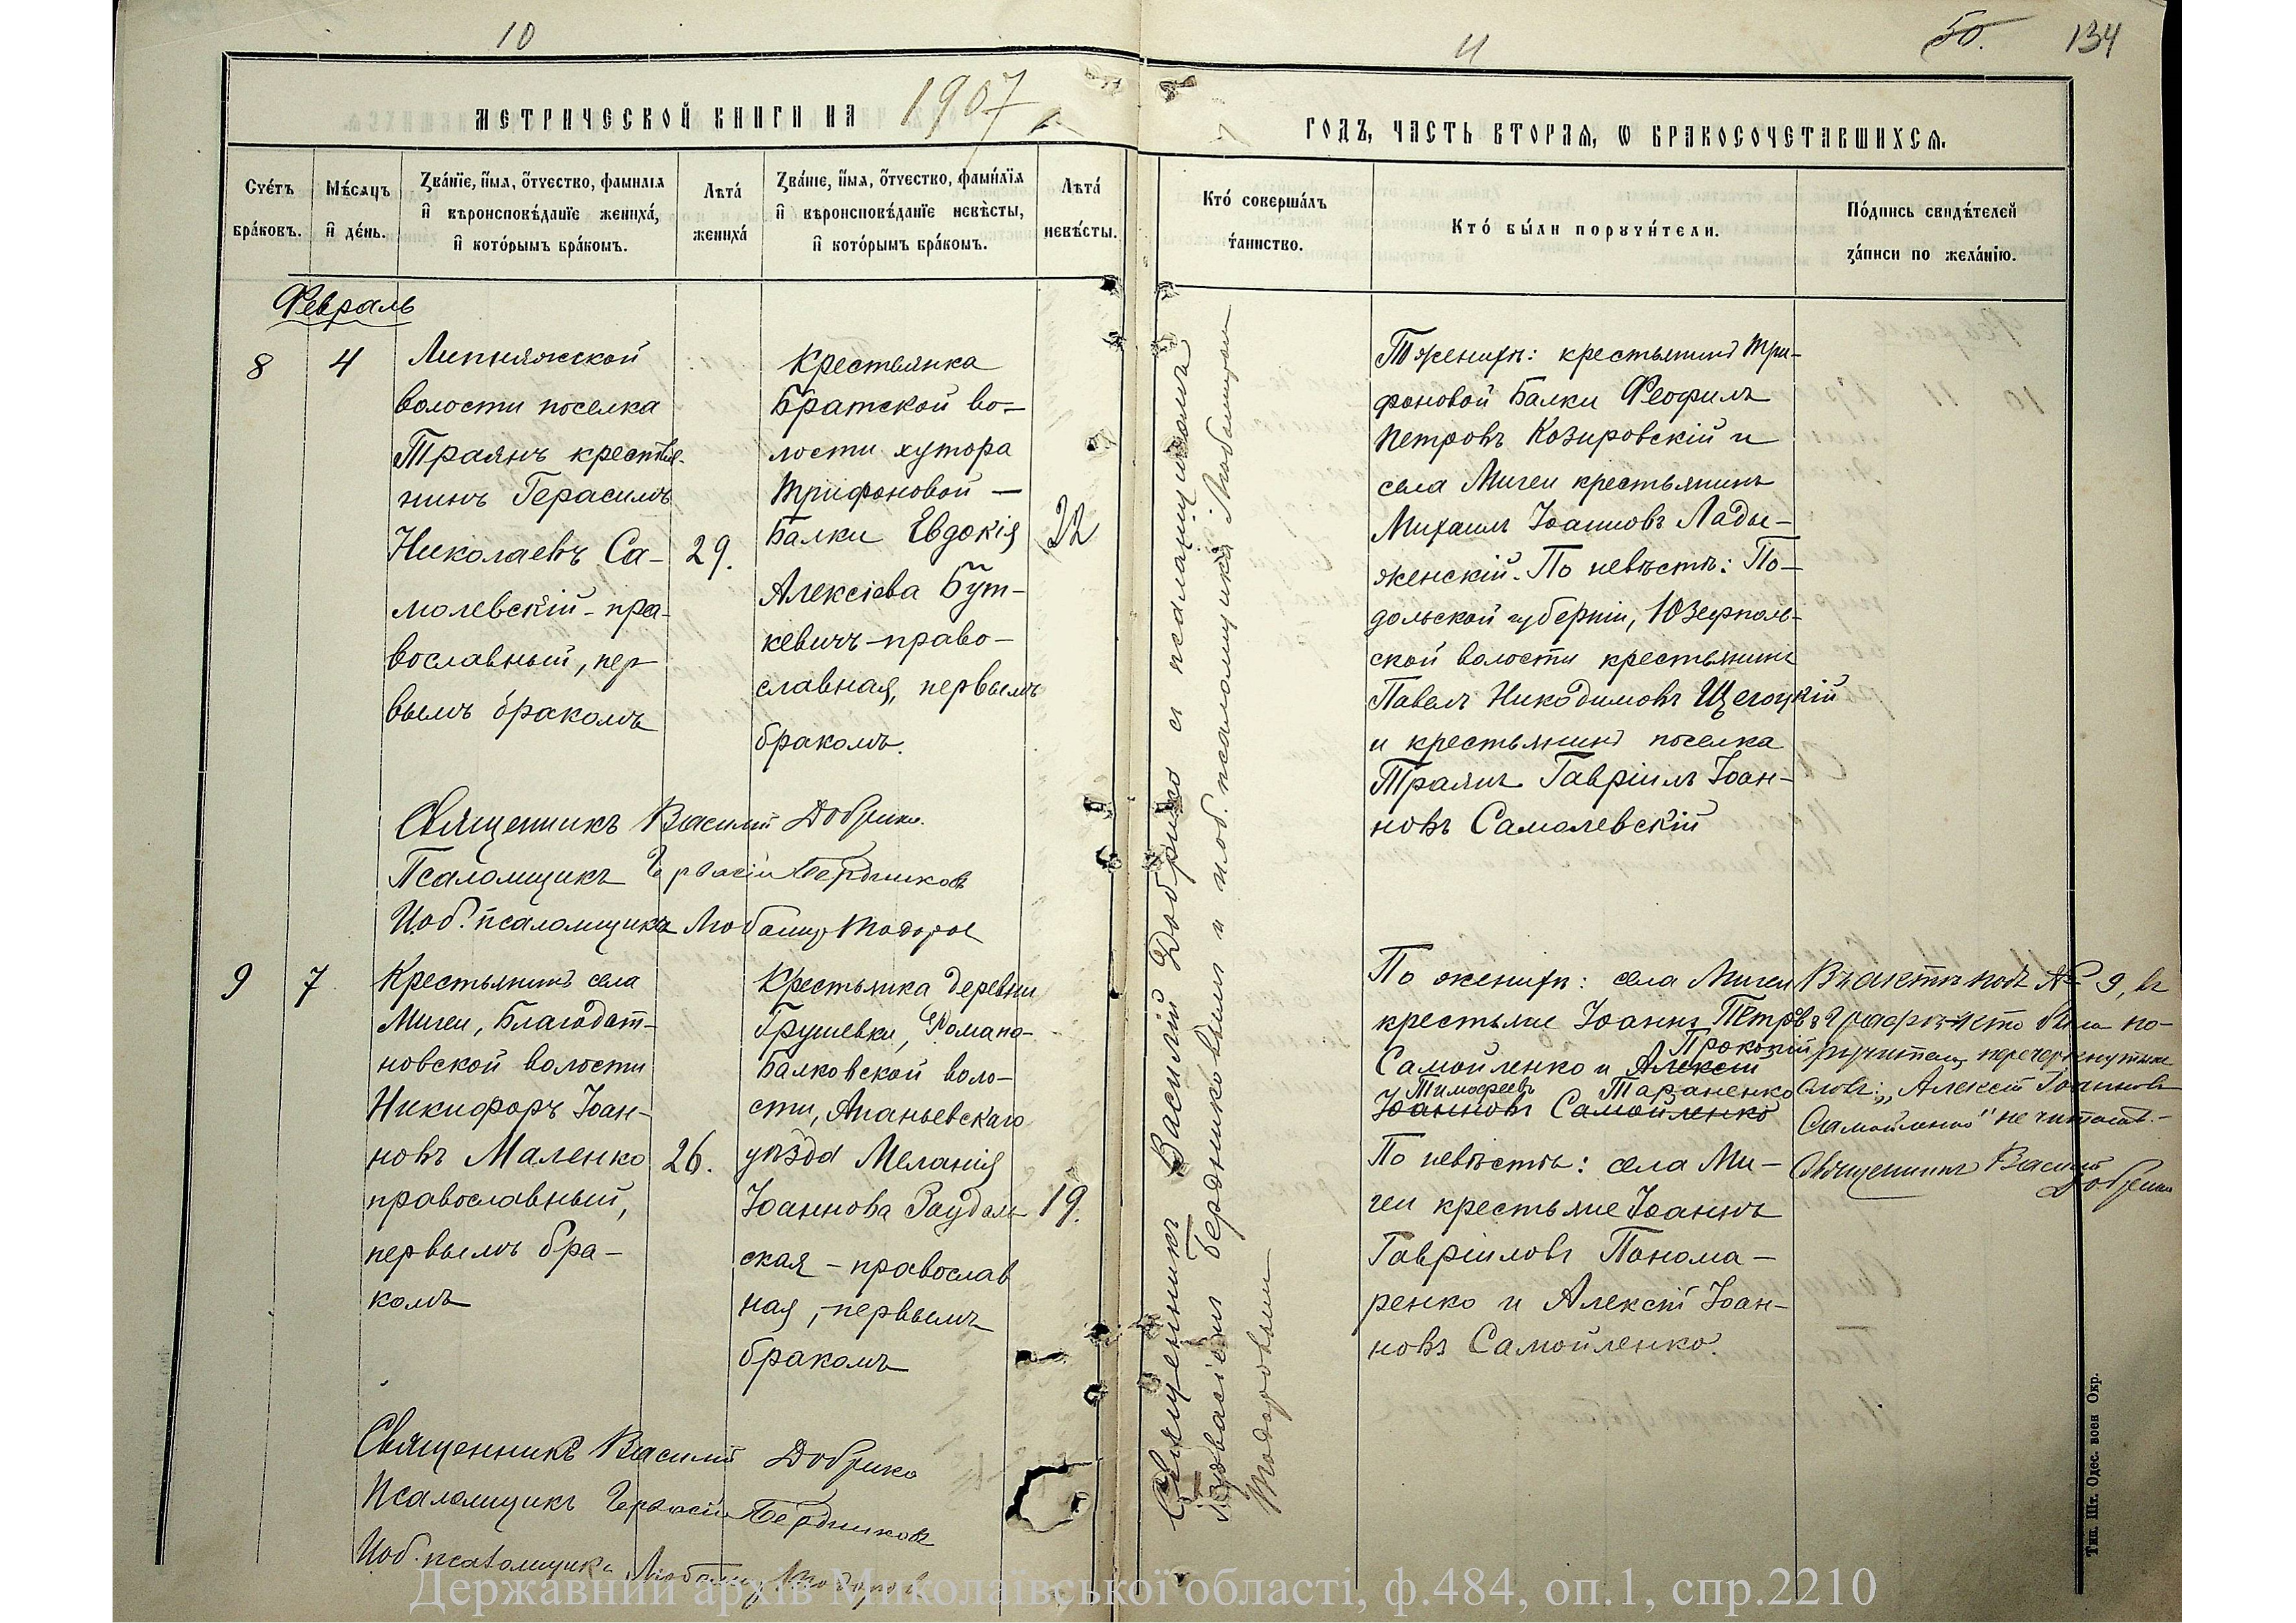 10
11
50.
134
МЕТРИЧЕСКОЙ КНИГИ НА 1907
ГОДЪ, ЧАСТЬ ВТОРАЯ, Ѡ БРАКОСОЧЕТАВШИХСЯ.
Счетъ браковъ.
Мѣсяцъ и день.
Званіе, имя, отчество, фамилія
и вѣроисповѣданіе жениха,
и которымъ бракомъ.
Лѣта жениха
Званіе, имя, отчество, фамилія
и вѣроисповѣданіе невѣсты,
и которымъ бракомъ.
Лѣта невѣсты.
Кто совершалъ
таинство.
Кто были поручители.
Подпись свидѣтелей
записи по желанію.
Февраль
8
4
Липняжской
волости поселка
Траянъ крестья-
нинъ Герасимъ
Николаевъ Са-
молевскій - пра-
вославный, пер
вымъ бракомъ
29.
Крестьянка
Братской во-
лости хутора
Трифоновой —
Балки Евдокія
Алексіева Бут-
кевичъ - право-
славная, первымъ
бракомъ.
22
Священникъ Василій Добрико и псаломщикомъ
Гервасіем Бердниковым и и об. псаломщика Любомиром
Тодоровым
женихѣ: крестьянинъ Три-
фоновой Балки Феофилъ
Петровъ Козировскій и
села Мигеи крестьянинъ
Михаилъ Іоанновъ Лады-
женскій. По невѣстѣ: По-
дольской губерніи, Юзефполь-
ской волости крестьянинъ
Павелъ Никодимовъ Щегоцкій
и крестьянинъ поселка
Траянъ Гавріилъ Іоан-
новъ Самолевскій
Священникъ Василій Добрико.
Псаломщикъ Гервасій Бердниковъ
И. об. псаломщика Тодоров
9
7
Крестьянинъ села
Мигеи, Благодат-
новской волости
Никифоръ Іоан-
новъ Маленко
православный,
первымъ бра-
комъ
26.
Крестьянка деревни
Грушевки, Романо-
Балковской воло-
сти, Ананьевскаго
уѣзда Меланія
Іоаннова Заудаль
ская - православ
ная, - первымъ
бракомъ
19.
По женихѣ: села Мигеи
крестьяне Іоаннъ Петровъ
Самойленко и Алексій Прокопій
Тимофеевъ Тараненко
Іоанновъ Самойленко
По невѣстѣ: села Ми-
геи крестьяне Іоаннъ
Гавріиловъ Понома-
ренко и Алексій Іоан-
новъ Самойленко.
Въ актѣ подъ № 9, въ
графѣ: кто были по-
ручители, перечеркнутыя
слова: „Алексій Іоанновъ
Самойленко" не читать. -
Священникъ Василій
Добрико
Священникъ Василій Добрико
Псаломщикъ Гервасій Бердниковъ
И. об. псаломщика Тодоров
Тип. Шт. Одес. воен Окр.
Державний архів Миколаївської області, ф.484, оп.1, спр.2210